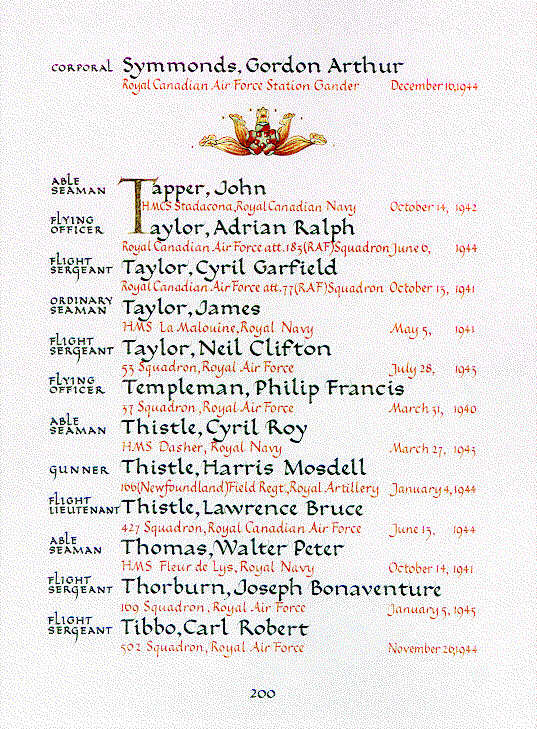 CORPORAL Symmonds, Gordon Arthur
Royal Canadian Air Force Station Gander December 16, 1944
ABLE SEAMAN Tapper, John
HMCS Stadacona, Royal Canadian Navy October 14, 1942
FLYING OFFICER Taylor, Adrian Ralph
Royal Canadian Air Force att. 183 (RAF) Squadron June 6, 1944
FLIGHT SERGEANT Taylor, Cyril Garfield
Royal Canadian Air Force att. 77 (RAF) Squadron October 13, 1941
ORDINARY SEAMAN Taylor, James
HMS La Malouine, Royal Navy May 5, 1941
FLIGHT SERGEANT Taylor, Neil Clifton
53 Squadron, Royal Air Force July 28, 1943
FLYING OFFICER Templeman, Philip Francis
37 Squadron, Royal Air Force March 31, 1940
ABLE SEAMAN Thistle, Cyril Roy
HMS Dasher, Royal Navy March 27, 1943
GUNNER Thistle, Harris Mosdell
166 (Newfoundland) Field Regt., Royal Artillery January 4, 1944
FLIGHT LIEUTENANT Thistle, Lawrence Bruce
427 Squadron, Royal Canadian Air Force June 13, 1944
ABLE SEAMAN Thomas, Walter Peter
HMS Fleur de Lys, Royal Navy October 14, 1941
FLIGHT SERGEANT Thorburn, Joseph Bonaventure
109 Squadron, Royal Air Force January 5, 1945
FLIGHT SERGEANT Tibbo, Carl Robert
502 Squadron, Royal Air Force November 26, 1944
200